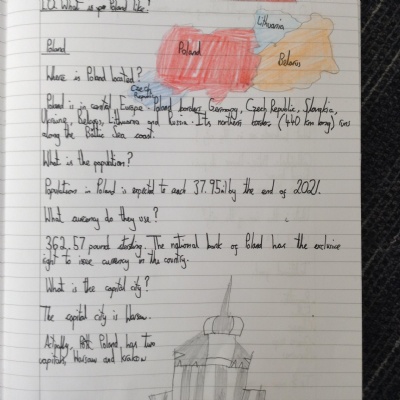 L.O. What is Poland like?
Lithuania
Poland
Poland
Belarus
Where is Poland located?
Czech Republic
Poland is in central Europe. Poland borders Germany, Czech Republic, Slovakia,
Ukraine, Belarus, Lithuania and Russia. Its northern border (440 km long) runs
along the Baltic Sea coast.
What is the population?
Populations in Poland is expected to reach 37.95mil by the end of 2021.
What currency do they use?
362,57 pound sterling. The national bank of Poland has the exclusive
right to issue currency in the country.
What is the capital city?
The capital city is Warsaw.
Actually, Poland, has two
capitals, Warsaw and Krakow